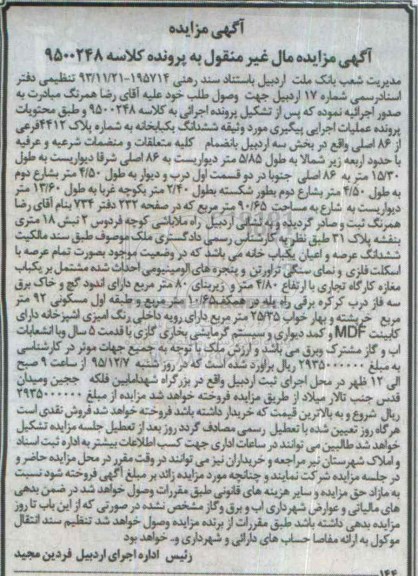 آگهی مزایده
آگهی مزایده مال غیر منقول به پرونده کلاسه ۹۵۰۰۲۴۸
مدیریت شعب بانک ملت اردبیل باستناد سند رهنی ۱۹۵۷۱۴-۹۳/۱۱/۲۱ تنظیمی دفتر
اسنادرسمی شماره ۱۷ اردبیل جهت وصول طلب خود علیه آقای رضا همرنگ مبادرت به
صدور اجرائیه نموده که پس از تشکیل پرونده اجرائی به کلاسه ۹۵۰۰۲۴۸ و طبق محتویات
پرونده عملیات اجرایی پیگیری مورد وثیقه ششدانگ یکبابخانه به شماره پلاک ۴۴۱۲فرعی
از ۸۶ اصلی واقع در بخش سه اردبیل بانضمام کلیه متعلقات و منضمات شرعیه و عرفیه
با حدود اربعه زیر شمالا به طول ۵/۸۵ متر دیواریست به ۸۶ اصلی شرقا دیواریست به طول
۱۵/۳۰ متر به ۸۶ اصلی جنوبا در دو قسمت اول درب و دیوار به طول ۴/۵۰ متر بشارع دوم
به طول ۴/۵۰ متر بشارع دوم بطور شکسته بطول ۲/۴۰ متر بکوچه غربا به طول ۱۳/۶۰ متر
دیواریست به شارع به مساحت ۹۰/۶۵ متر مربع که در صفحه ۲۳۲ دفتر ۷۳۴ بنام آقای رضا
همرنگ ثبت و صادر گردیده و به نشانی اردبیل راه ملاباشی کوچه فردوس ۲ نبش ۱۸ متری
بنفشه پلاک ۳۱ طبق نظریه کارشناس رسمی دادگستری ملک موصوف طبق سند مالکیت
ششدانگ عرصه و اعیان یکباب خانه می باشد که در وضعیت موجود بصورت تمام عرصه با
اسکلت فلزی و نمای سنگی تراورتن و پنجره های آلومینیومی احداث شده مشتمل بر یکباب
مغازه کارگاه تجاری با ارتفاع ۴/۸۰ متر و زیربنای ۸۰ متر مربع دارای اندود گچ و خاک برق
سه فاز درب کرکره برقی راه پله در همکف ۱۰/۶۵ متر مربع و طبقه اول مسکونی ۹۲ متر
مربع خرپشته و بهار خواب ۲۵/۳۵ متر مربع دارای رویه داخلی رنگ آمیزی آشپزخانه دارای
کابینت MDF و کمد دیواری و سیستم گرمایشی بخاری گازی با قدمت ۵ سال وبا انشعابات
آب و گاز مشترک وبرق می باشد و ارزش ملک با توجه به جمیع جهات موثر در کارشناسی
به مبلغ ۲۹۳۵۰۰۰۰۰۰ ریال برآورد شده است که در روز شنبه ۹۵/۱۲/۷ از ساعت ۹ صبح
الی ۱۲ ظهر در محل اجرای ثبت اردبیل واقع در بزرگراه شهدامابین فلکه ججین ومیدان
قدس جنب تالار میلاد از طریق مزایده فروخته خواهد شد مزایده از مبلغ ۲۹۳۵۰۰۰۰۰۰
ریال شروع و به بالاترین قیمت که خریدار داشته باشد فروخته خواهد شد فروش نقدی است
هر گاه روز تعیین شده با تعطیل رسمی مصادف گردد روز بعد از تعطیل جلسه مزایده تشکیل
خواهد شد طالبین می توانند در ساعات اداری جهت کسب اطلاعات بیشتر به اداره ثبت اسناد
و املاک شهرستان نیر مراجعه و خریداران نیز می توانند در وقت مقرر در محل مزایده حاضر و
در جلسه مزایده شرکت نمایند و چنانچه مورد مزایده زائد بر مبلغ آگهی فروخته شود نسبت
به مازاد حق مزایده و سایر هزینه های قانونی طبق مقررات وصول خواهد شد در ضمن بدهی
های مالیاتی و عوارض شهرداری آب و برق وگاز مشخص نشده در صورتی که از این باب تا روز
مزایده بدهی داشته باشد طبق مقررات از برنده مزایده وصول خواهد شد تنظیم سند انتقال
موکول به ارائه مفاصا حساب های دارائی و شهرداری و.. خواهد بود
رئیس اداره اجرای اردبیل فردین مجید
۱۴۴